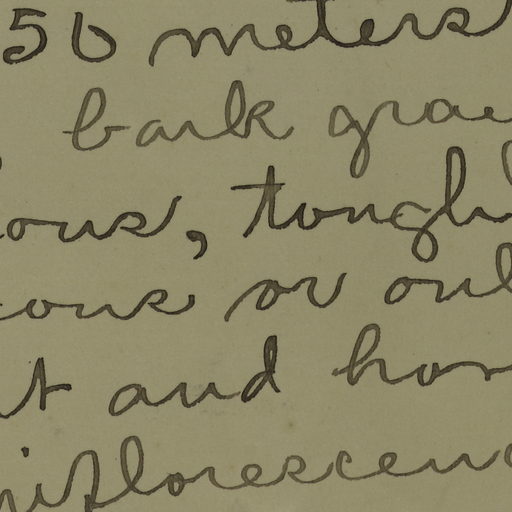 50 meters
bark gra
ous, tough
ous or onl
t and hor
inflorescenc